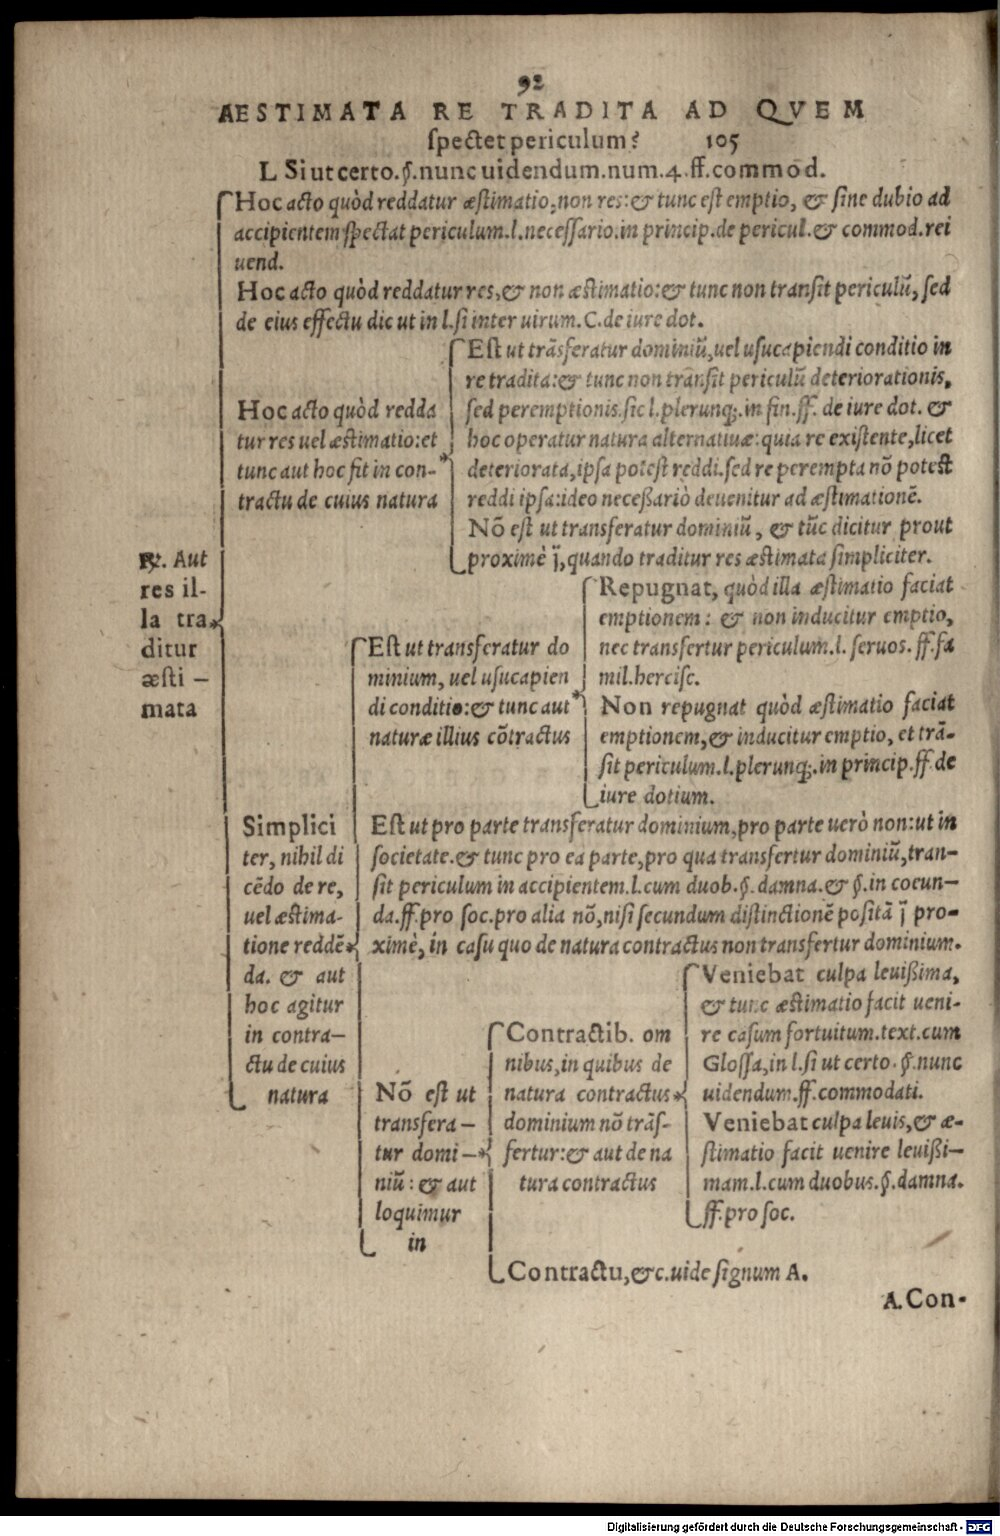 92
AESTIMATA RE TRADITA AD QVEM
spectet periculum? 105
L Si ut certo.§.nunc uidendum.num.4.ff.commod.
Hoc acto quòd reddatur æstimatio,non res:& tunc est emptio, & sine dubio ad
accipientem spectat periculum.l.necessario.in princip.de pericul.& commod.rei
uend.
Hoc acto quòd reddatur res,& non æstimatio:& tunc non transit periculũ, sed
de eius effectu dic ut in l.si inter uirum.C.de iure dot.
Hoc acto quòd redda
tur res uel æstimatio:et
tunc aut hoc fit in con-
tractu de cuius natura
Est ut trãsferatur dominiũ,uel usucapiendi conditio in
re tradita:& tunc non transit periculũ deteriorationis,
sed peremptionis.sic l.plerunq;.in fin.ff. de iure dot. &
hoc operatur natura alternatiuæ:quia re existente,licet
deteriorata,ipsa potest reddi.sed re perempta nõ potest
reddi ipsa:ideo necessariò deuenitur ad æstimationẽ.
Nõ est ut transferatur dominiũ, & tũc dicitur prout
proximè j̃,quando traditur res æstimata simpliciter.
℞. Aut
res il-
la tra
ditur
æsti-
mata
Simplici
ter, nihil di
cẽdo de re,
uel æstima-
tione reddẽ
da. & aut
hoc agitur
in contra-
ctu de cuius
natura
Est ut transferatur do
minium, uel usucapien
di conditio:& tunc aut
naturæ illius cõtractus
Repugnat, quòd illa æstimatio faciat
emptionem: & non inducitur emptio,
nec transfertur periculum.l. seruos. ff.fa
mil.hercisc.
Non repugnat quòd æstimatio faciat
emptionem,& inducitur emptio, et trã-
sit periculum.l.plerunq;.in princip.ff.de
iure dotium.
Est ut pro parte transferatur dominium,pro parte uerò non:ut in
societate.& tunc pro ea parte,pro qua transfertur dominiũ,tran-
sit periculum in accipientem.l.cum duob.§.damna.& §.in coeun-
da.ff.pro soc.pro alia nõ,nisi secundum distinctionẽ positã j̃ pro-
ximè, in casu quo de natura contractus non transfertur dominium.
Nõ est ut
transfera-
tur domi-
niũ: & aut
loquimur
in
Contractib. om
nibus,in quibus de
natura contractus
dominium nõ trãs-
fertur:& aut de na
tura contractus
Veniebat culpa leuissima,
& tunc æstimatio facit ueni-
re casum fortuitum.text.cum
Glossa,in l.si ut certo.§.nunc
uidendum.ff.commodati.
Veniebat culpa leuis,& æ-
stimatio facit uenire leuissi-
mam.l.cum duobus.§.damna.
ff.pro soc.
Contractu,&c.uide signum A.
A.Con-
Digitalisierung gefördert durch die Deutsche Forschungsgemeinschaft - DFG